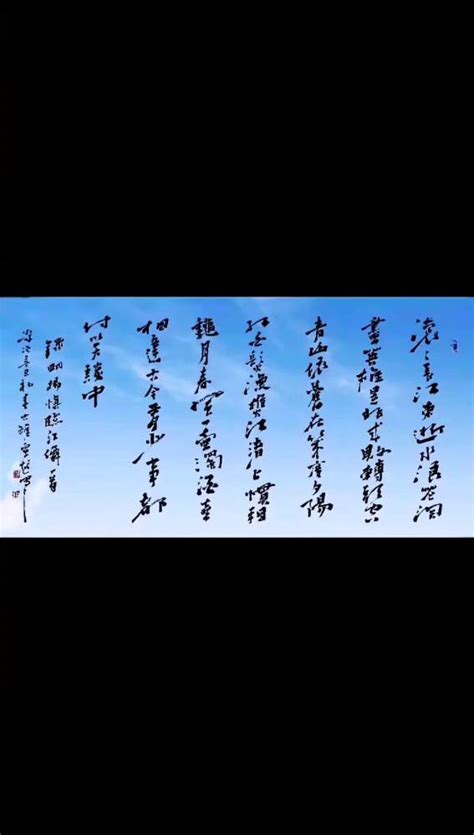 滚滚長江東逝水浪花淘
盡英雄是非成敗轉頭空
青山依舊在幾度夕陽
紅白髮漁樵江渚上慣看
秋月春風一壺濁酒喜
相逢古今多少事都
付笑談中
錄明楊慎臨江僊一首